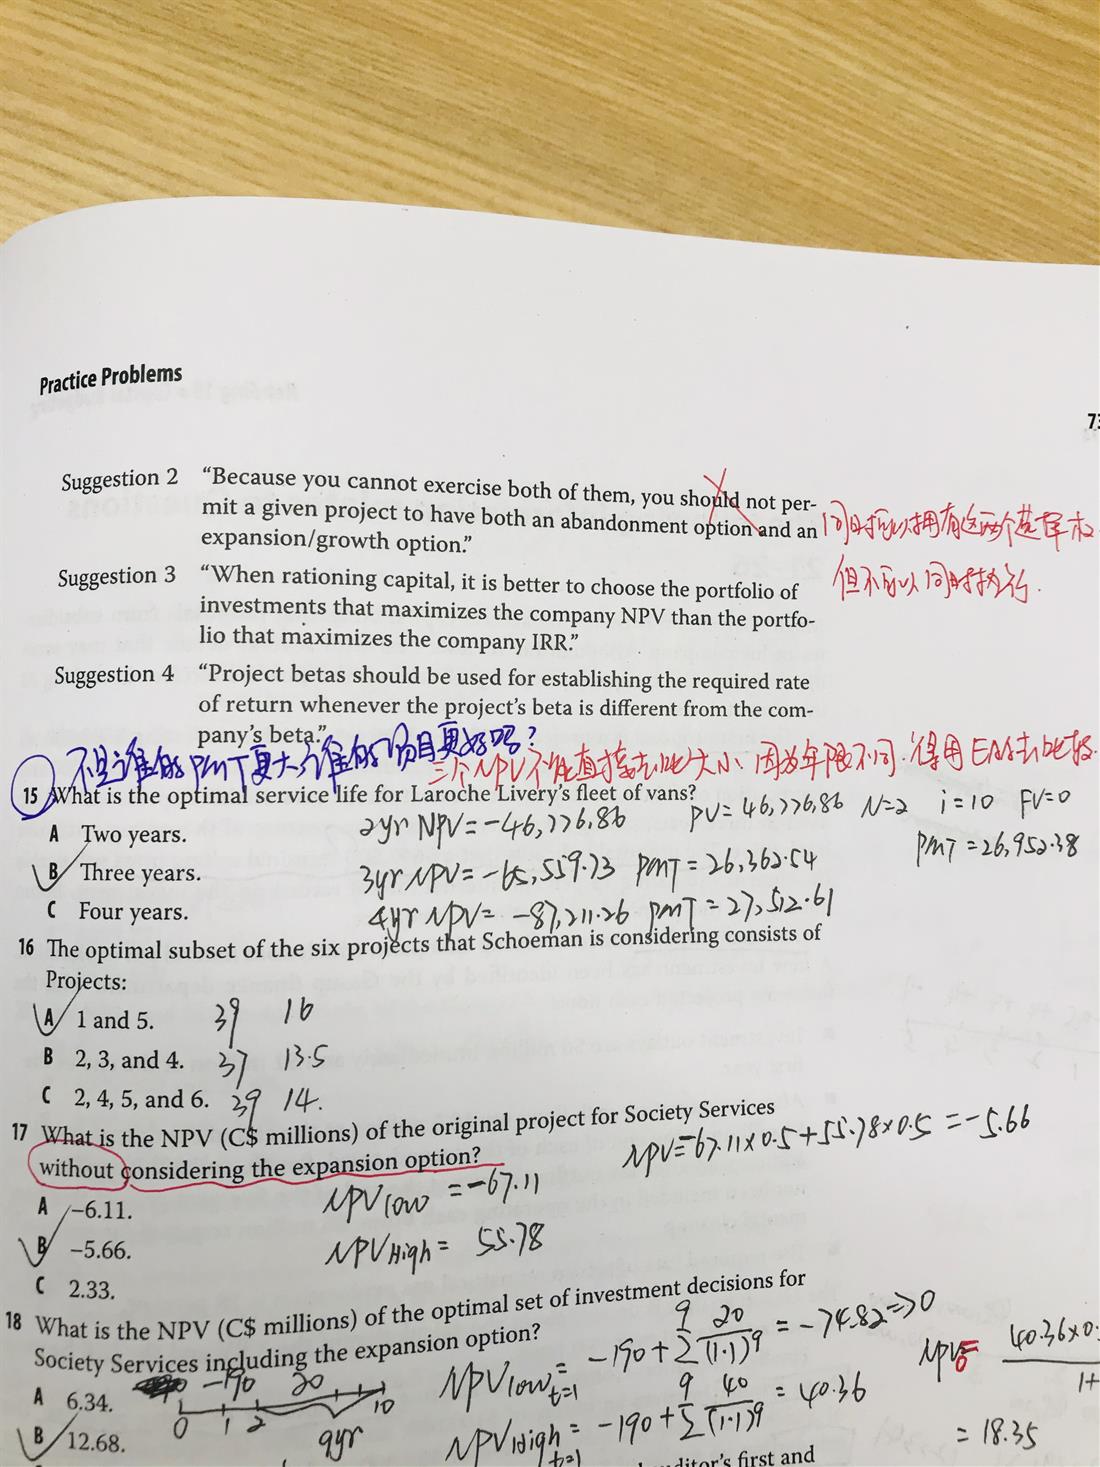 Practice Problems
73
Suggestion 2 "Because you cannot exercise both of them, you should not per-
mit a given project to have both an abandonment option and an
expansion/growth option."
同时可以拥有这两个选择权
但不可以同时执行.
Suggestion 3 "When rationing capital, it is better to choose the portfolio of
investments that maximizes the company NPV than the portfo-
lio that maximizes the company IRR."
Suggestion 4 "Project betas should be used for establishing the required rate
of return whenever the project's beta is different from the com-
pany's beta."
不是谁的PMT更大,谁的项目更好吗?
三个NPV不能直接去比大小,因为年限不同.得用EAA去比较
15 What is the optimal service life for Laroche Livery's fleet of vans?
A Two years.
2yr NPV=-46,776.86 PV=46,776.86 N=2 i=10 FV=0
PMT=26,952.38
B Three years.
3yr NPV=-65,559.73 PMT=26,362.54
C Four years.
4yr NPV=-87,211.26 PMT=27,512.61
16 The optimal subset of the six projects that Schoeman is considering consists of
Projects:
A 1 and 5. 39 16
B 2, 3, and 4. 37 13.5
C 2, 4, 5, and 6. 39 14.
17 What is the NPV (C$ millions) of the original project for Society Services
without considering the expansion option?
NPV=-67.11×0.5+55.78×0.5=-5.66
A -6.11.
NPVlow=-67.11
B -5.66.
NPVHigh=55.78
C 2.33.
18 What is the NPV (C$ millions) of the optimal set of investment decisions for
Society Services including the expansion option?
A 6.34.
-190 20
0 1 2 10
9yr
NPVlow=-190+Σ 9 t=1 20/(1.1)9=-74.82=>0
B 12.68.
NPVHigh=-190+Σ 9 t=1 40/(1.1)9=40.36
NPV=40.36×0.
1+
=18.35
ditor's first and